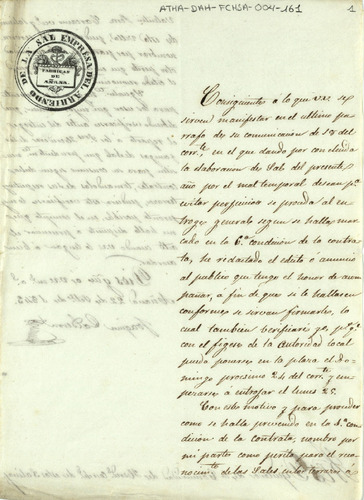 ATHA-DAH-FCHSA-004-161
1
EMPRESA DEL ARRIENDO DE LA SAL
FABRICAS DE AÑANA
Consiguientes á lo que VV. se
sirven manifestar en el ultimo par-
rafo de su comunicacion de 18 del
corr.te en el que dando por concluida
la elaboracion de Sal del presente
año por el mal temporal desean p.a
evitar perjuicios se proceda al en-
troge general segun se halla mar-
cado en la 6.a condicion de la contra-
ta, he redactado el edito ó anuncio
al publico que tengo el honor de acom-
pañar, a fin de que si le hallasen
conforme se sirvan firmarle, lo
cual tambien verificaré yo, p.a q.e
con el de la autoridad local
pueda ponerse en la plaza el Do-
mingo proximo 24 del corr.te y em-
pezarse á entrojar el lunes 25.
Con este motivo y para proceder
como se halla prevenido en la
condicion de la contrata, nombro por
mi parte como perito para el reco-
nocim.to de las Sales